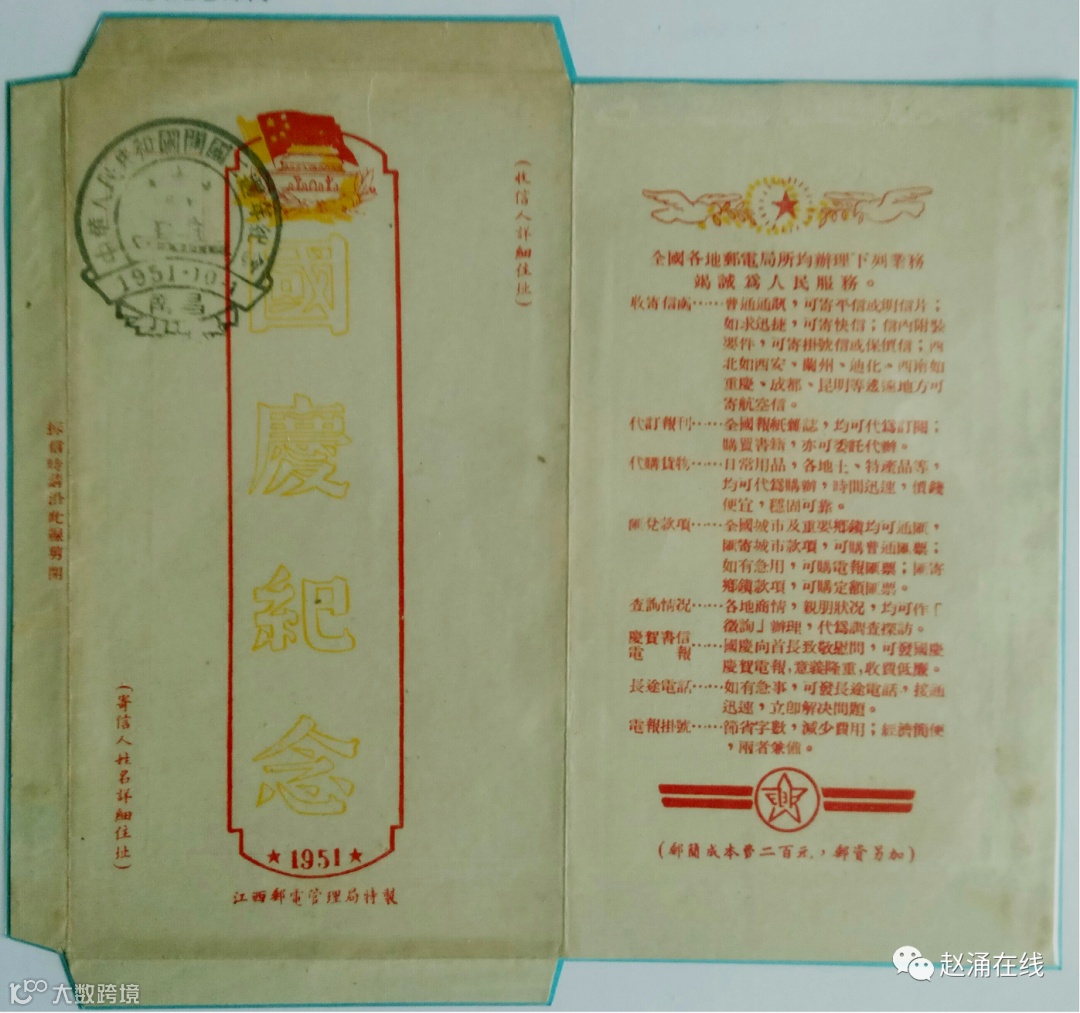 中華人民共和國開國二週年紀念
1951·10·1
南昌
國慶紀念
★1951★
江西郵電管理局特製
(收信人詳細住址)
(寄信人姓名詳細住址)
拆信時請沿此線剪開
全國各地郵電局所均辦理下列業務
竭誠爲人民服務。
收寄信函……普通通訊,可寄平信或明信片;
如求迅捷,可寄快信;信內附裝
要件,可寄掛號信或保價信;西
北如西安、蘭州、迪化、西南如
重慶、成都、昆明等遙遠地方可
寄航空信。
代訂報刊……全國報紙雜誌,均可代爲訂閱;
購置書籍,亦可委託代辦。
代購貨物……日常用品,各地土、特產品等,
均可代爲購辦,時間迅速,價錢
便宜,穩固可靠。
匯兌款項……全國城市及重要鄉鎮均可通匯,
匯寄城市款項,可購普通匯票;
如有急用,可購電報匯票;匯寄
鄉鎮款項,可購定額匯票。
查詢情況……各地商情,親朋狀況,均可作「
徵詢」辦理,代爲調查探訪。
慶賀書信
電報……國慶向首長致敬慰問,可發國慶
慶賀電報,意義隆重,收費低廉。
長途電話……如有急事,可發長途電話,接通
迅速,立即解決問題。
電報掛號……節省字數,減少費用;經濟簡便
,兩者兼備。
(郵簡成本費二百元,郵資另加)
赵涌在线
大数跨境